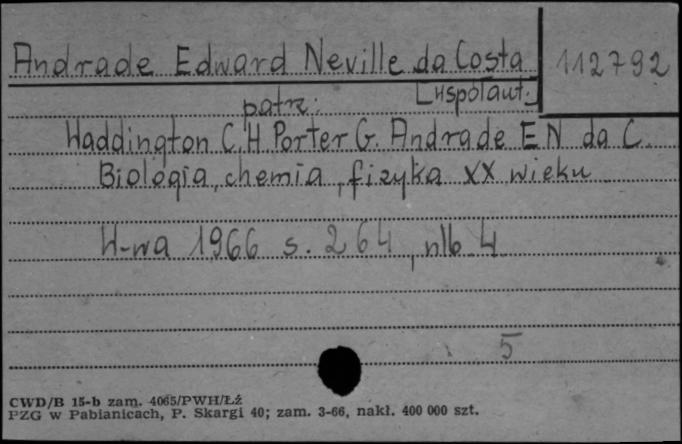 Andrade Edward Neville da Costa 112792
[współaut.]
patrz:
Waddington C.H. Porter G. Andrade E N da C.
Biologia, chemia, fizyka XX wieku
W-wa 1966 s. 264, nlb 4
5
CWD/B 15-b zam. 4065/PWH/Łź
PZG w Pabianicach, P. Skargi 40; zam. 3-66, nakł. 400 000 szt.